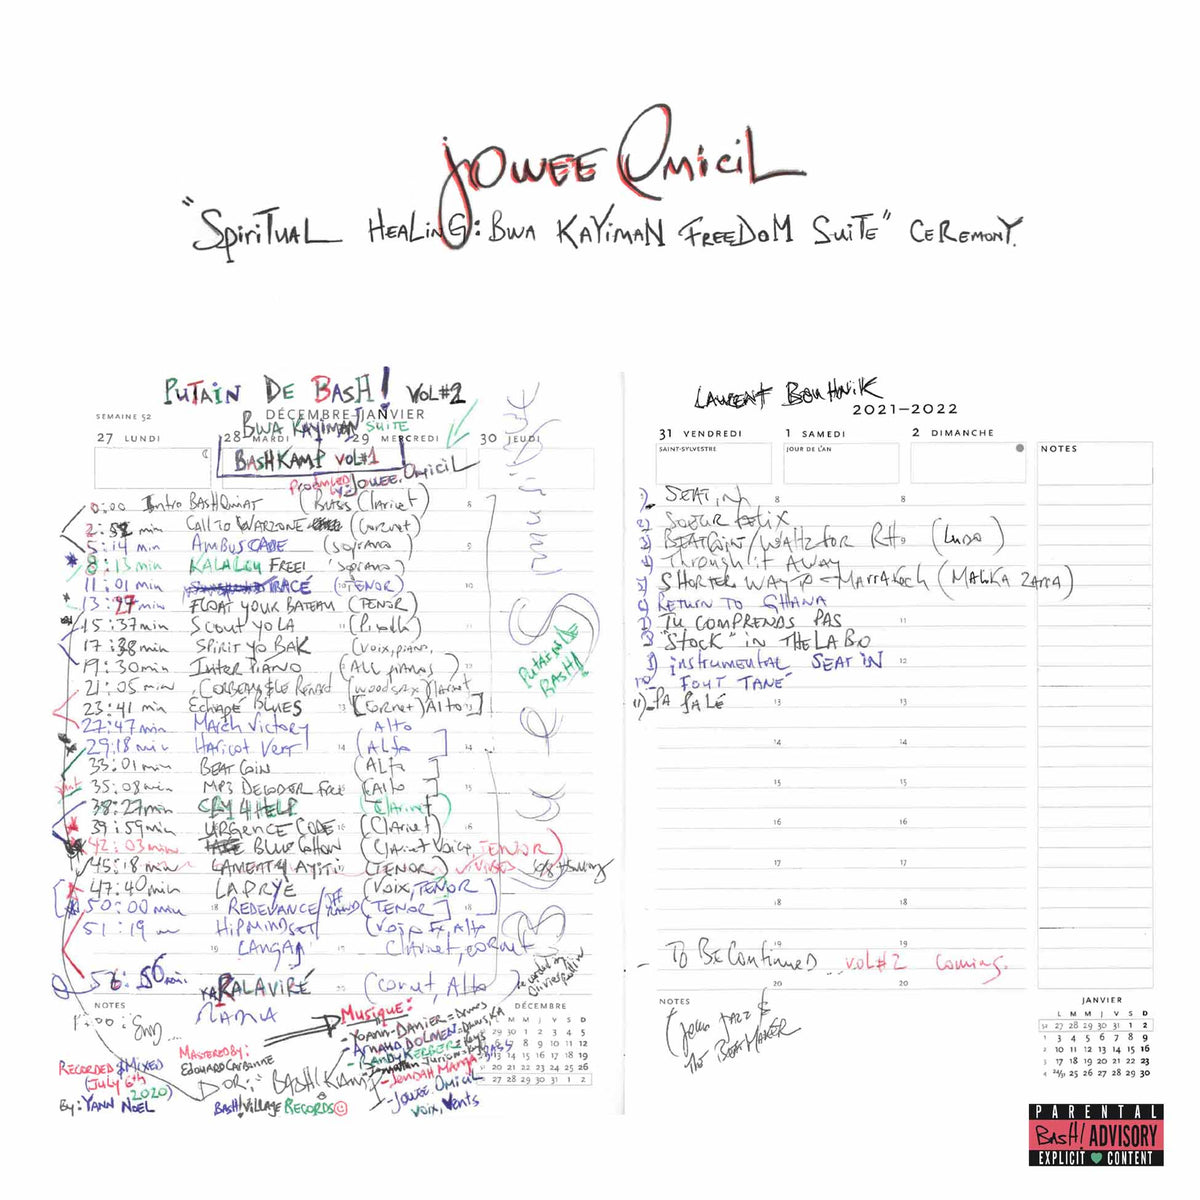 Jowee Omicil
"Spiritual Healing: Bwa Kayiman Freedom Suite" Ceremony.
Putain De Bash! Vol#2
SEMAINE 52
DÉCEMBRE–JANVIER
Bwa Kayiman Suite
27 LUNDI 28 MARDI 29 MERCREDI 30 JEUDI
BashKamp Vol#1
Produced by: Jowee Omicil
0:00 Intro BashQuiat (Bass Clarinet) 8
2:52 min Call to Warzone (Cornet)
5:14 min Ambuscade (Soprano) 9
8:13 min Kalalou Free! (Soprano)
11:01 min Tracé (Tenor) 10
13:27 min Float Your Bateau (Tenor)
15:37 min Scout Yo La (Piccolo) 11
17:38 min Spirit Yo Bak (Voix, piano,
19:30 min Inter Piano (All pianos) 12
21:05 min Corbeau & Le Renard
23:41 min Echapé Blues 13 [Cornet) Alto]
27:47 min March Victory Alto
29:18 min Haricot Vert 14 (Alto] 14
33:01 min Beat Coin (Alto]
35:08 min MP3 Decoder Free (Alto 15
38:27 min Cry 4 Help (Clarinet)
39:59 min Urgence Code 16 (Clarinet) 16
42:03 min Blue Cohon (Clarinet Voice, Tenor)
45:18 min Lament 4 Ayiti (Tenor)
47:40 min LaDrye (Voix, Tenor
50:00 min 18 Redevance (Tenor] 18
51:19 Hipmindset
19 Langaj Clarinet, cornet
56:56 min. Karalaviré (Cornut, Alto)
NOTES
Mama
Putain De Bash!
Recorded & Mixed
(July 6th 2020)
By: Yann Noel
Mastered by:
Edouard Carbonne
BashKamp
Bash! Village Records ©
Musique:
- Yoann Danier = Drums
- Arnaud Dolmen = Drums, Ka
- Randy Kerber = Keys
- Jonathan Jurion = Keys
- Jendah Manga = Bass
- Jowee Omicil
Voix, Vents
DÉCEMBRE
M M J V S D
29 30 1 2 3 4 5
6 7 8 9 10 11 12
13 14 15 16 17 18 19
20 21 22 23 24 25 26
27 28 29 30 31 1 2
Laurent Bouhnik
2021–2022
31 VENDREDI 1 SAMEDI 2 DIMANCHE
SAINT-SYLVESTRE JOUR DE L'AN NOTES
1) Seat in 8 8
2) Soeur Felix
3) Beatcoin/Waltz for RH. (Ludo)
4) Through it Away
5) Shorter Way to Marrakech (Malika Zarra)
6) Return to Ghana
7) Tu Comprends Pas 11
8) "Stock" in the Labo
9) instrumental Seat in 12
10 - Fout Tané
11) - Pa Palé 13 13
14 14
15 15
16 16
17 17
18 18
19 19
- To Be Continued... vol#2 coming.
20 20
NOTES
(John Jazz &
The Beat Maker
JANVIER
L M M J V S D
52 27 28 29 30 31 1 2
1 3 4 5 6 7 8 9
2 10 11 12 13 14 15 16
3 17 18 19 20 21 22 23
4 24/31 25 26 27 28 29 30
PARENTAL
Bash! ADVISORY
EXPLICIT CONTENT